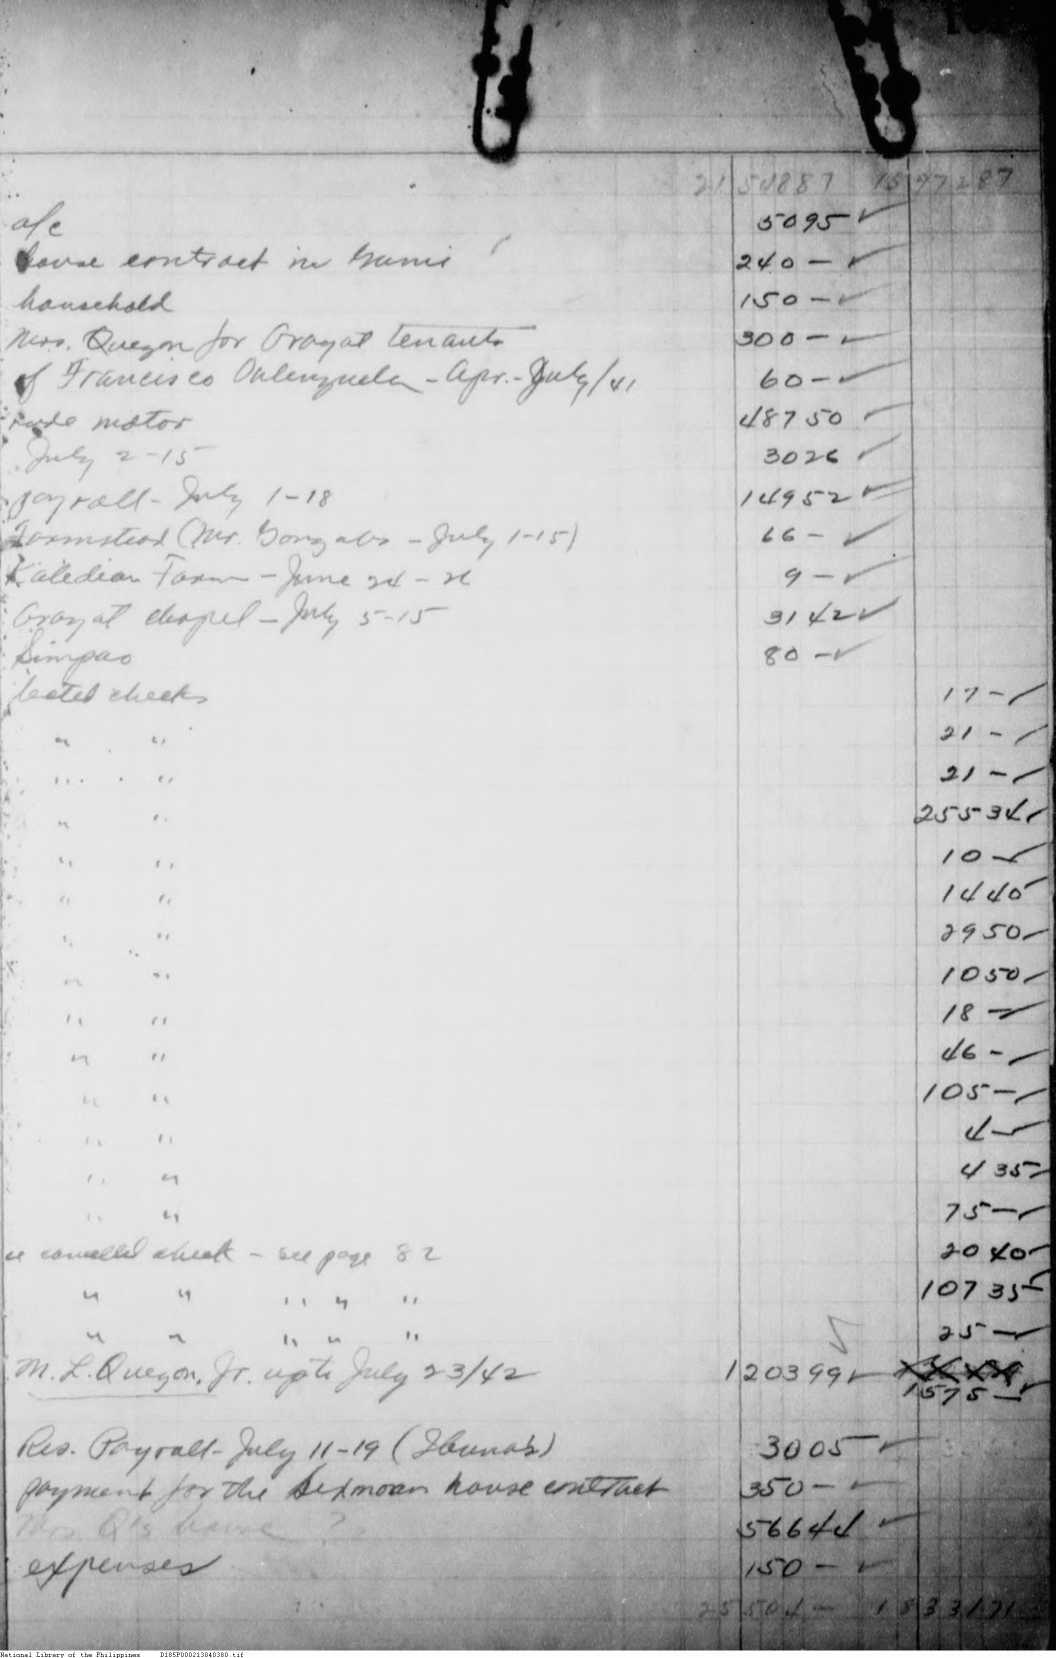 21 548 87 15 972 87
a/c 50 95 ✓
house contract in 240 — ✓
household 150 — ✓
Mrs. Quezon for Arayat tenants 300 — ✓
of Francisco Valenzuela - Apr. - July/41 60 — ✓
motor 487 50 ✓
July 2-15 30 26 ✓
payroll - July 1-18 149 52 ✓
Farmstead (Mr. Gonzales - July 1-15) 66 — ✓
Kaledian Farm - June 24 - 26 9 — ✓
Arayat chapel - July 5-15 31 42 ✓
Simpao 80 — ✓
checks 17 — ✓
" " 21 — ✓
" " 21 — ✓
" " 255 34 ✓
" " 10 — ✓
" " 14 40 ✓
" " 29 50 ✓
" " 10 50 ✓
" " 18 — ✓
" " 46 — ✓
" " 105 — ✓
" " 4 — ✓
" " 4 35 ✓
" " 75 — ✓
cancelled check - see page 82 20 40 ✓
" " " " " 107 35 ✓
" " " " " 25 — ✓
M. L. Quezon, Jr. up to July 23/42 1 203 99 ✓
1 575 — ✓
Res. Payroll - July 11-19 30 05 ✓
payment for the Sexmoan house contract 350 — ✓
Mrs. Q's house ? 566 44 ✓
expenses 150 — ✓
25 504 — 18 331 71
National Library of the Philippines D185P000213040380.tif